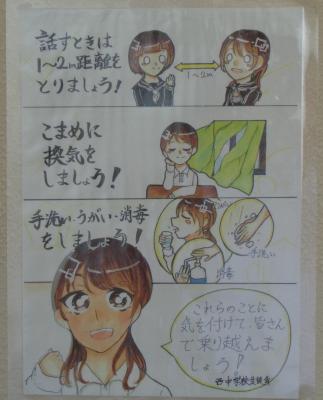 話すときは
1〜2m距離を
とりましょう!
1〜2m
こまめに
換気を
しましょう!
手洗い・うがい・消毒
をしましょう!
手洗い
消毒
これらのことに
気を付けて、皆さん
で乗り越えま
しょう!
西中学校生徒会